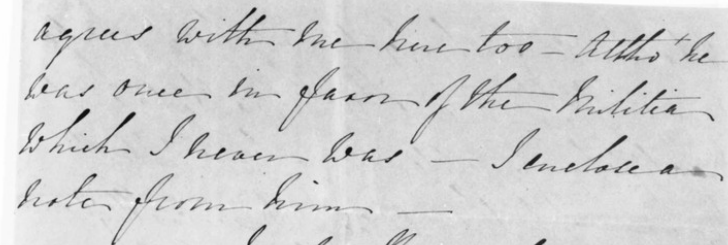 agrees with me here too – Altho' he
was once in favor of the Militia
which I never was – I enclose a
note from him –